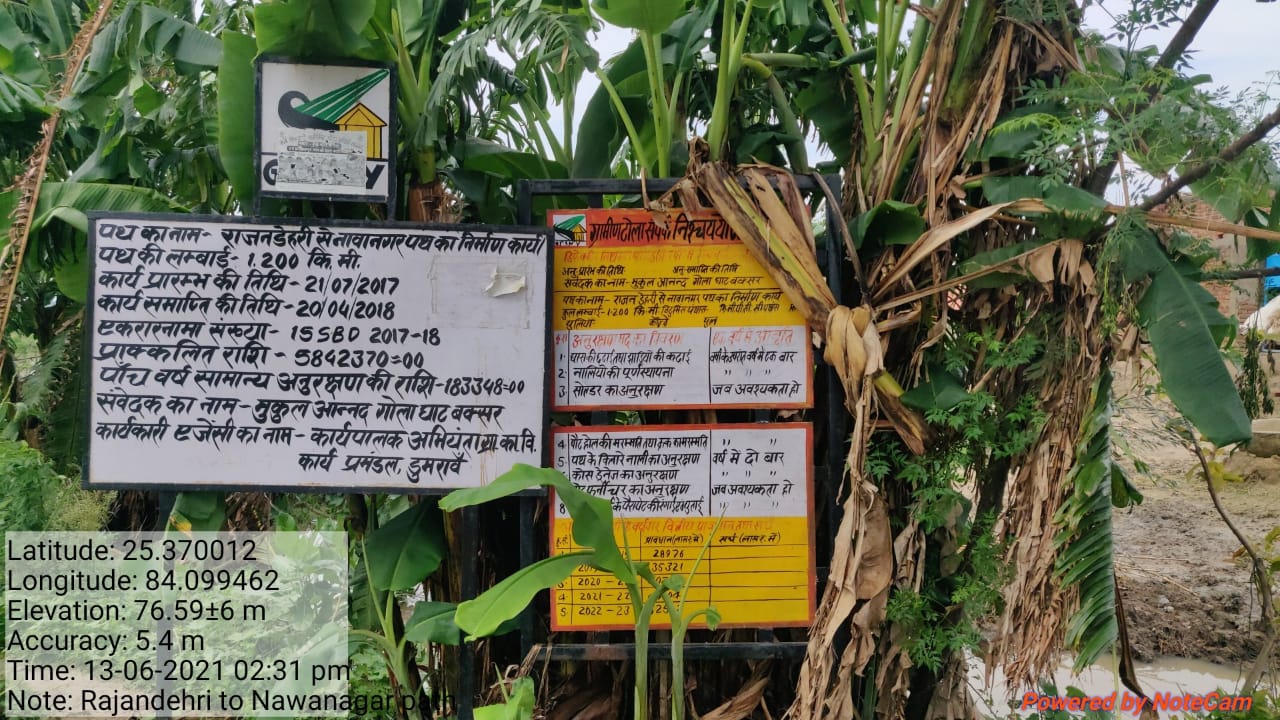 G Y
पथ का नाम- राजनडेहरी से नावानगर पथ का निर्माण कार्य
पथ की लम्बाई- 1.200 कि.मी.
कार्य प्रारम्भ की तिथि-21/07/2017
कार्य समाप्ति की तिथि-20/04/2018
एकरारनामा संख्या- 15SBD 2017-18
प्राक्कलित राशि- 5842370=00
पाँच वर्ष सामान्य अनुरक्षण की राशि-183348=00
संवेदक का नाम-मुकुल आन्नद गोला घाट बक्सर
कार्यकारी एजेंसी का नाम- कार्यपालक अभियंता ग्रा.का.वि.
कार्य प्रमंडल, डुमराँव
ग्रामीण टोला संपर्क निश्चय यो
अनु.प्रारंभ की तिथि अनु-समाप्ति की तिथि
संवेदक का नाम-मुकुल आनन्द गोला घाट बक्सर
पथ का नाम- राजन डेहरी से नावानगर पथ का निर्माण कार्य
कुल लम्बाई-1.200 कि.मी.
पुलिया-
अनुरक्षण मद का विवरण
1 घास की छटाई तथा झाड़ियों की कटाई वर्षा के उपरांत वर्ष में एक बार
2 नालियों की पूर्णस्थापना " " "
3 सोल्डर का अनुरक्षण जब अवश्यकता हो
4 पौट होल की मरम्मति तथा " "
5 पथ के किनारे नाली का अनुरक्षण वर्ष मे दो बार
क्रोस ड्रेनेज का अनुरक्षण " " "
फर्नीचर का अनुरक्षण जब अवश्यकता हो
8
प्रावधान(लाख रू.में) खर्च (लाख रू. में)
28976
35321
3 2020-
4 2021-22 04
5 2022-23 25
Latitude: 25.370012
Longitude: 84.099462
Elevation: 76.59±6 m
Accuracy: 5.4 m
Time: 13-06-2021 02:31 pm
Note: Rajandehri to Nawanagar path
Powered by NoteCam